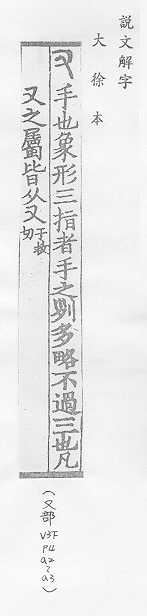 説文解字
大徐本
又手也象形三指者手之𠛱多略不過三也凡
又之屬皆从又于救切
(又部
V3下
P4
a2
~
a3)